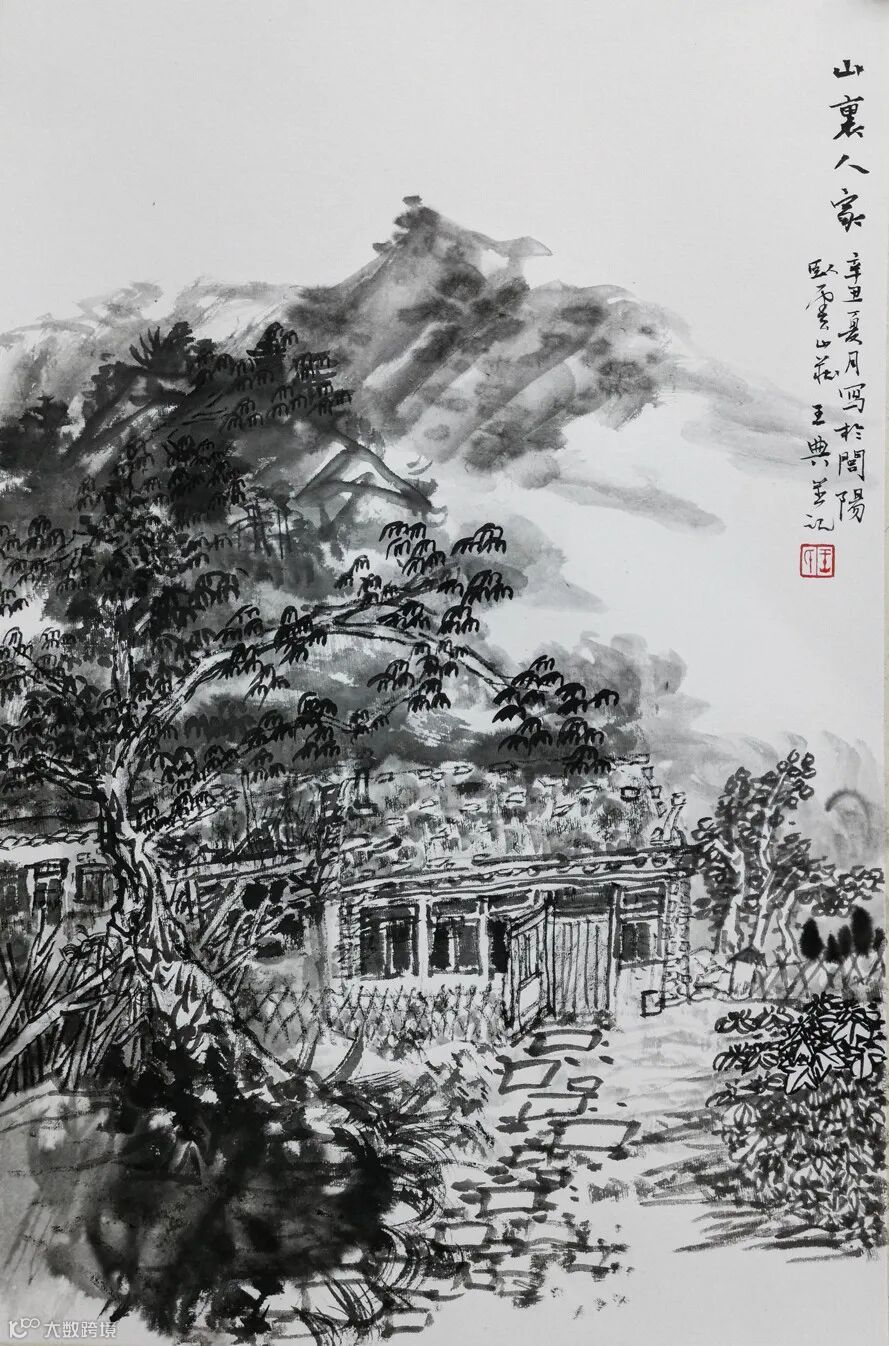 山裏人家
辛丑夏月写於閭陽
臥雲山莊 王典並记
大数跨境